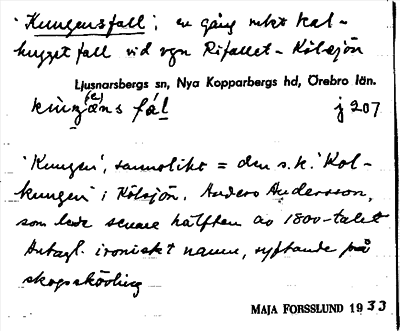 'Kungensfall', en gång rikt kal-
hugget fall vid vgn Rifallet - Kölsjön
Ljusnarsbergs sn, Nya Kopparbergs hd, Örebro län.
(e)
kuŋæns fal j 207
'Kungen', sannolikt = den s.k. 'Kol-
kungen' i Kölsjön, Anders Andersson,
som levde senare hälften av 1800-talet
Antagl. ironiskt namn, syftande på
skogsskövling
MAJA FORSSLUND 1933